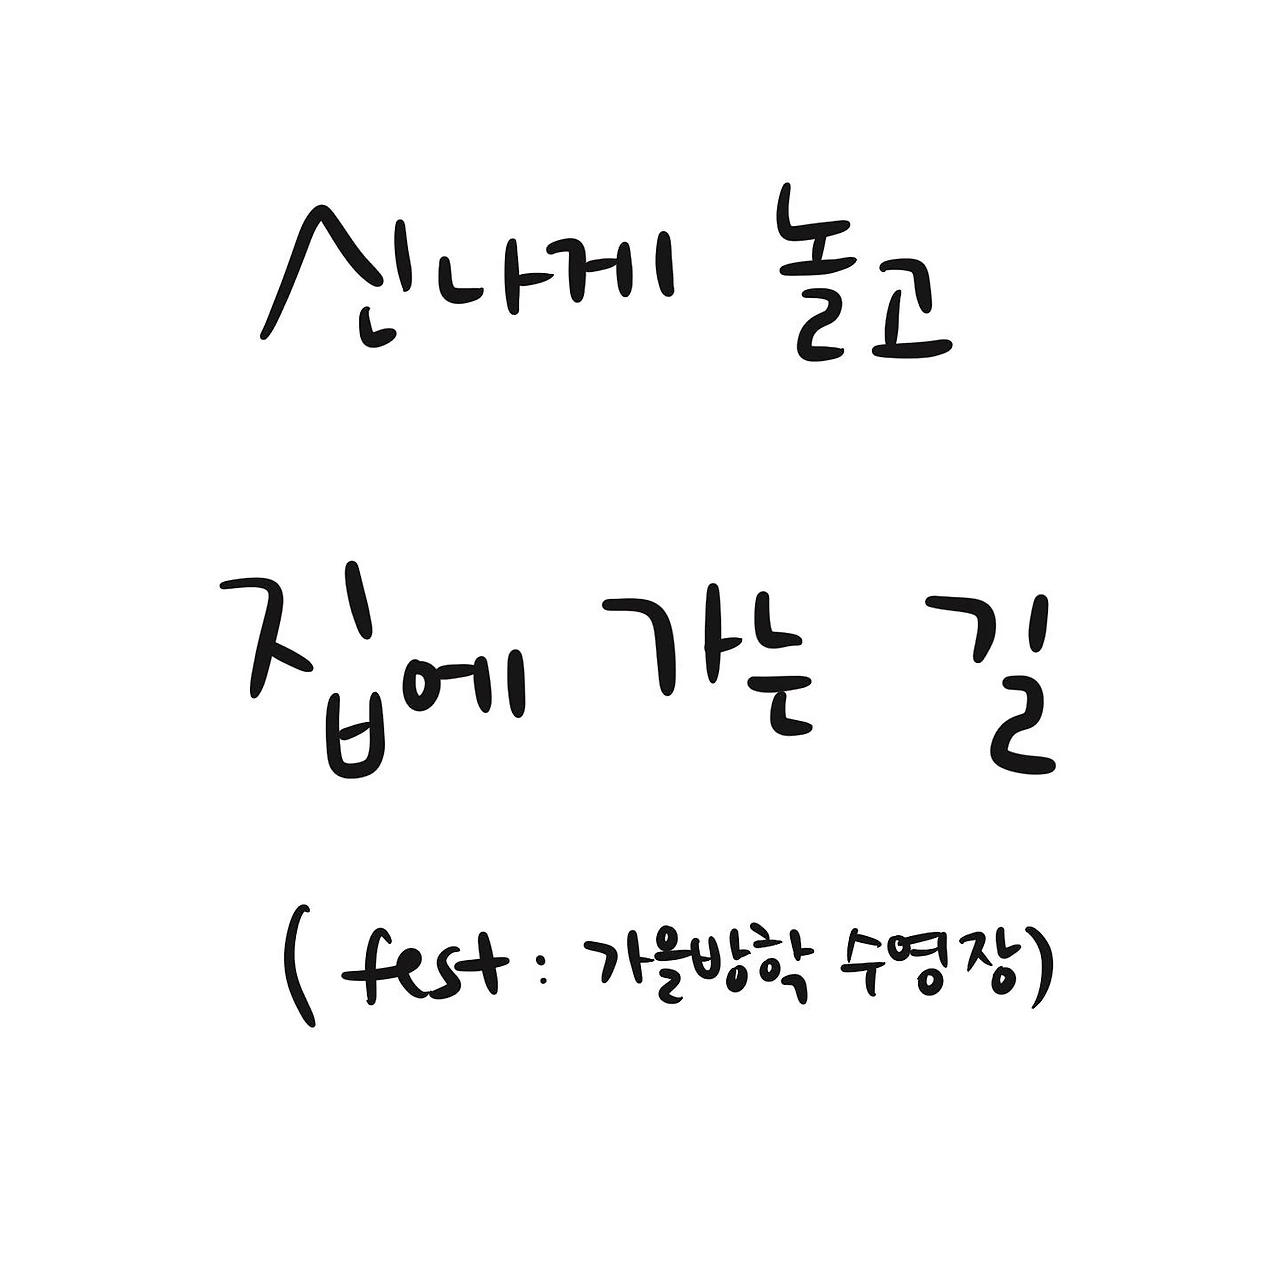 신나게 놀고
집에 가는 길
(fest : 가을방학 수영장)